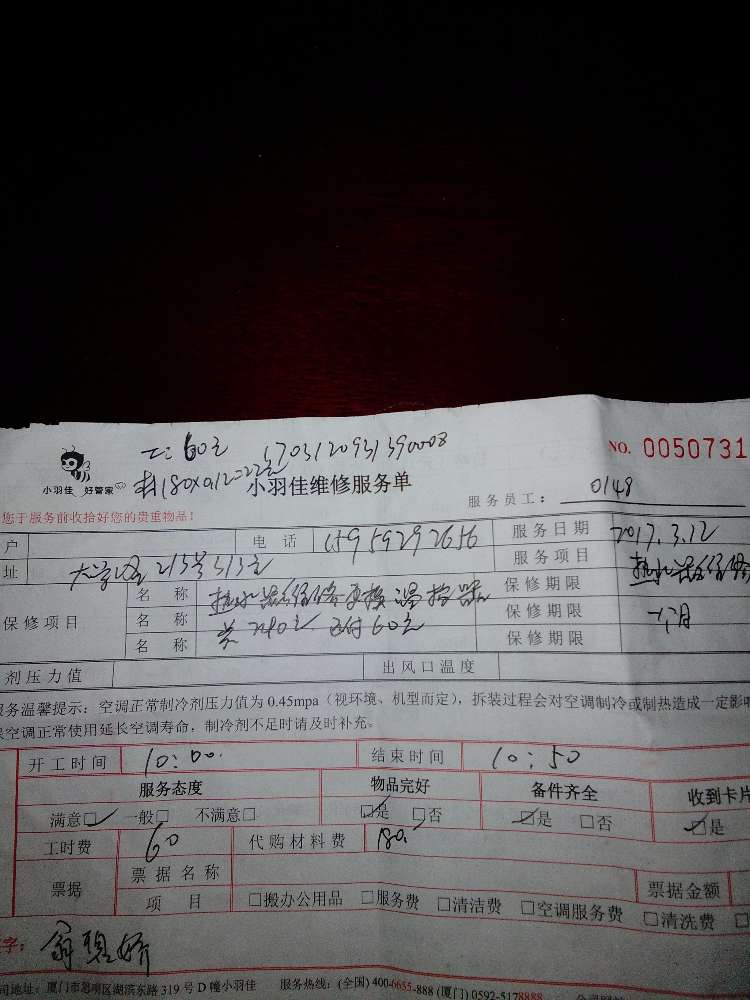 工:60元 1703120931390008
NO. 0050731
小羽佳 好管家
料180×0.12=22元
小羽佳维修服务单
服务员工: 0149
您于服务前收拾好您的贵重物品!
户 电 话 15959292656 服务日期 2017.3.12
址 大学路213号313室 服务项目 热水器维修
保修项目 名 称 热水器维修更换温控器 保修期限
名 称 共240元 已付60元 保修期限 一个月
名 称 保修期限
剂压力值 出风口温度
服务温馨提示:空调正常制冷剂压力值为 0.45mpa(视环境、机型而定),拆装过程会对空调制冷或制热造成一定影响
保空调正常使用延长空调寿命,制冷剂不足时请及时补充。
开工时间 10:00. 结束时间 10:50
服务态度 物品完好 备件齐全 收到卡片
满意☑ 一般□ 不满意□ ☑是 □否 ☑是 □否 ☑是
工时费 60 代购材料费 180.
票据 票据名称 票据金额
项 目 □搬办公用品 □服务费 □清洁费 □空调服务费 □清洗费 □
字:
司地址:厦门市思明区湖滨东路 319 号 D 幢小羽佳 服务热线:(全国) 400-6655-888 (厦门) 0592-5178888